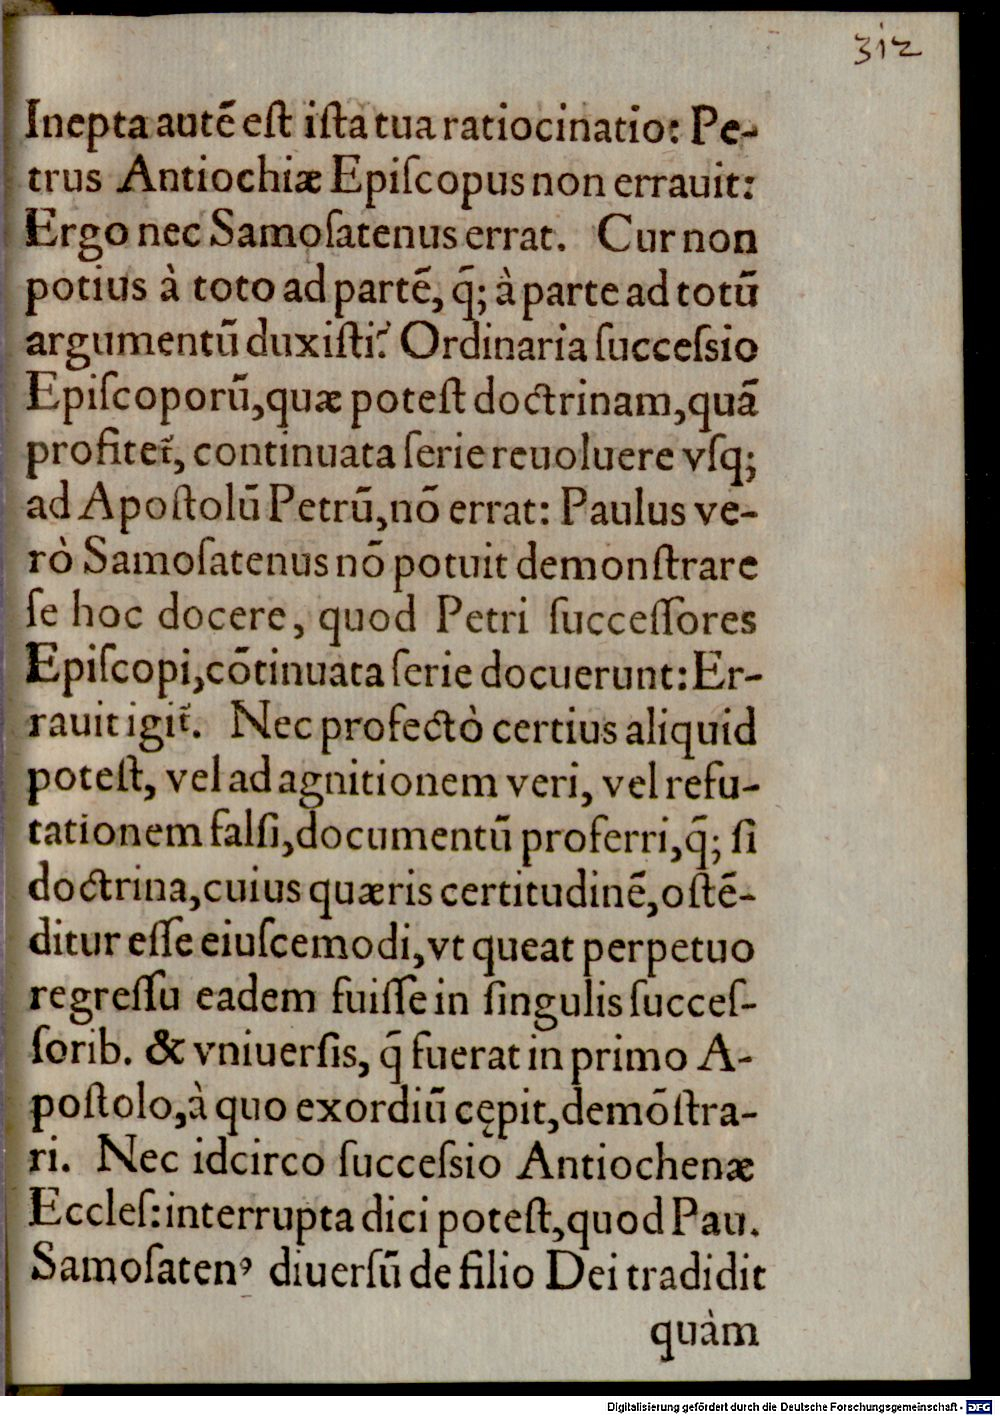 312
Inepta autē eſt iſta tua ratiocinatio: Pe-
trus Antiochiæ Epiſcopus non errauit:
Ergo nec Samoſatenus errat. Cur non
potius à toto ad partē, q̄; à parte ad totū
argumentū duxiſti? Ordinaria ſucceſsio
Epiſcoporū, quæ poteſt doctrinam, quā
profitet᷑, continuata ſerie reuoluere vſq;
ad Apoſtolū Petrū, nō errat: Paulus ve-
rò Samoſatenus nō potuit demonſtrare
ſe hoc docere, quod Petri ſucceſſores
Epiſcopi, cōtinuata ſerie docuerunt: Er-
rauit igit᷑. Nec profectò certius aliquid
poteſt, vel ad agnitionem veri, vel refu-
tationem falſi, documentū proferri, q̄; ſi
doctrina, cuius quæris certitudinē, oſtē-
ditur eſſe eiuſcemodi, vt queat perpetuo
regreſſu eadem fuiſſe in ſingulis ſucceſ-
ſorib. & vniuerſis, q̄ fuerat in primo A-
poſtolo, à quo exordiū cępit, demōſtra-
ri. Nec idcirco ſucceſsio Antiochenæ
Eccleſ: interrupta dici poteſt, quod Pau.
Samoſatenꝰ diuerſū de filio Dei tradidit
quàm
Digitalisierung gefördert durch die Deutsche Forschungsgemeinschaft - DFG